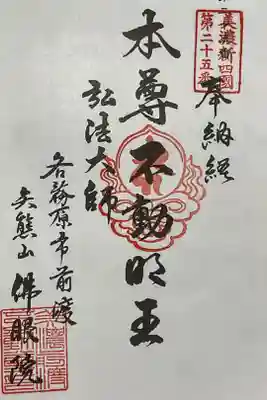 美濃新四國
第二十五番
奉納経
本尊不動明王
弘法大師
各務原市前渡
矢熊山
佛眼院